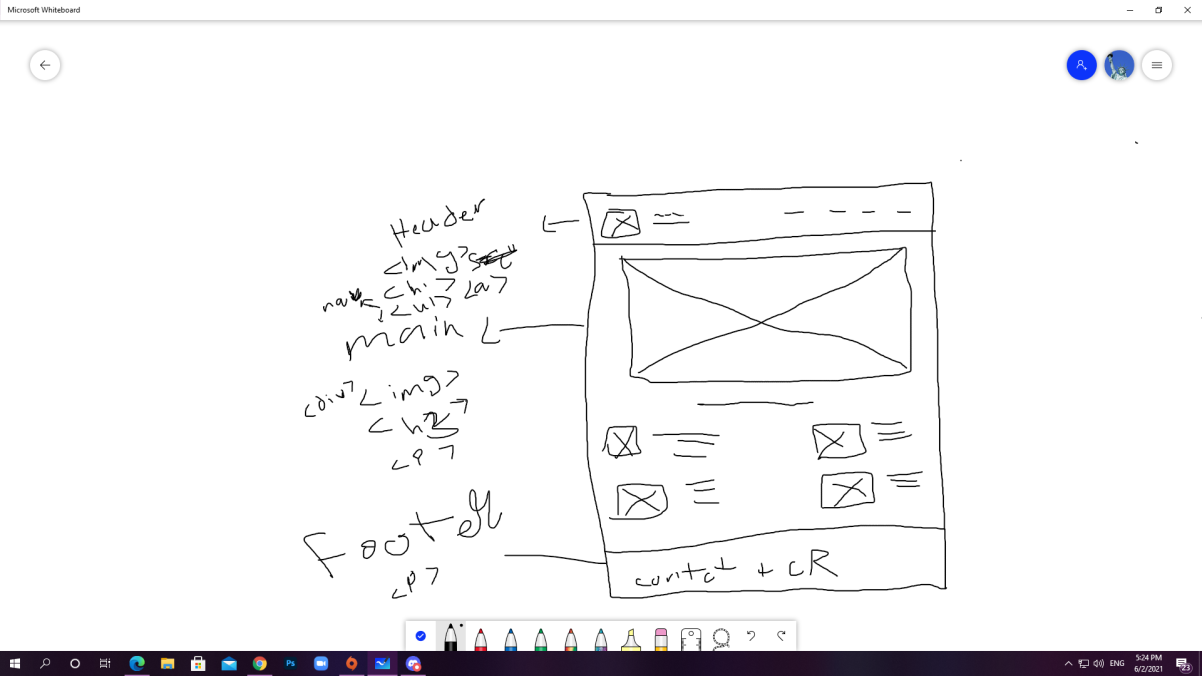 Microsoft Whiteboard
Header
<img>
<h1>
<a>
<ul>
main
<div> <img>
<h2>
<p>
Footer
<p>
contact + CR
Ps
ENG
5:24 PM
6/2/2021
23